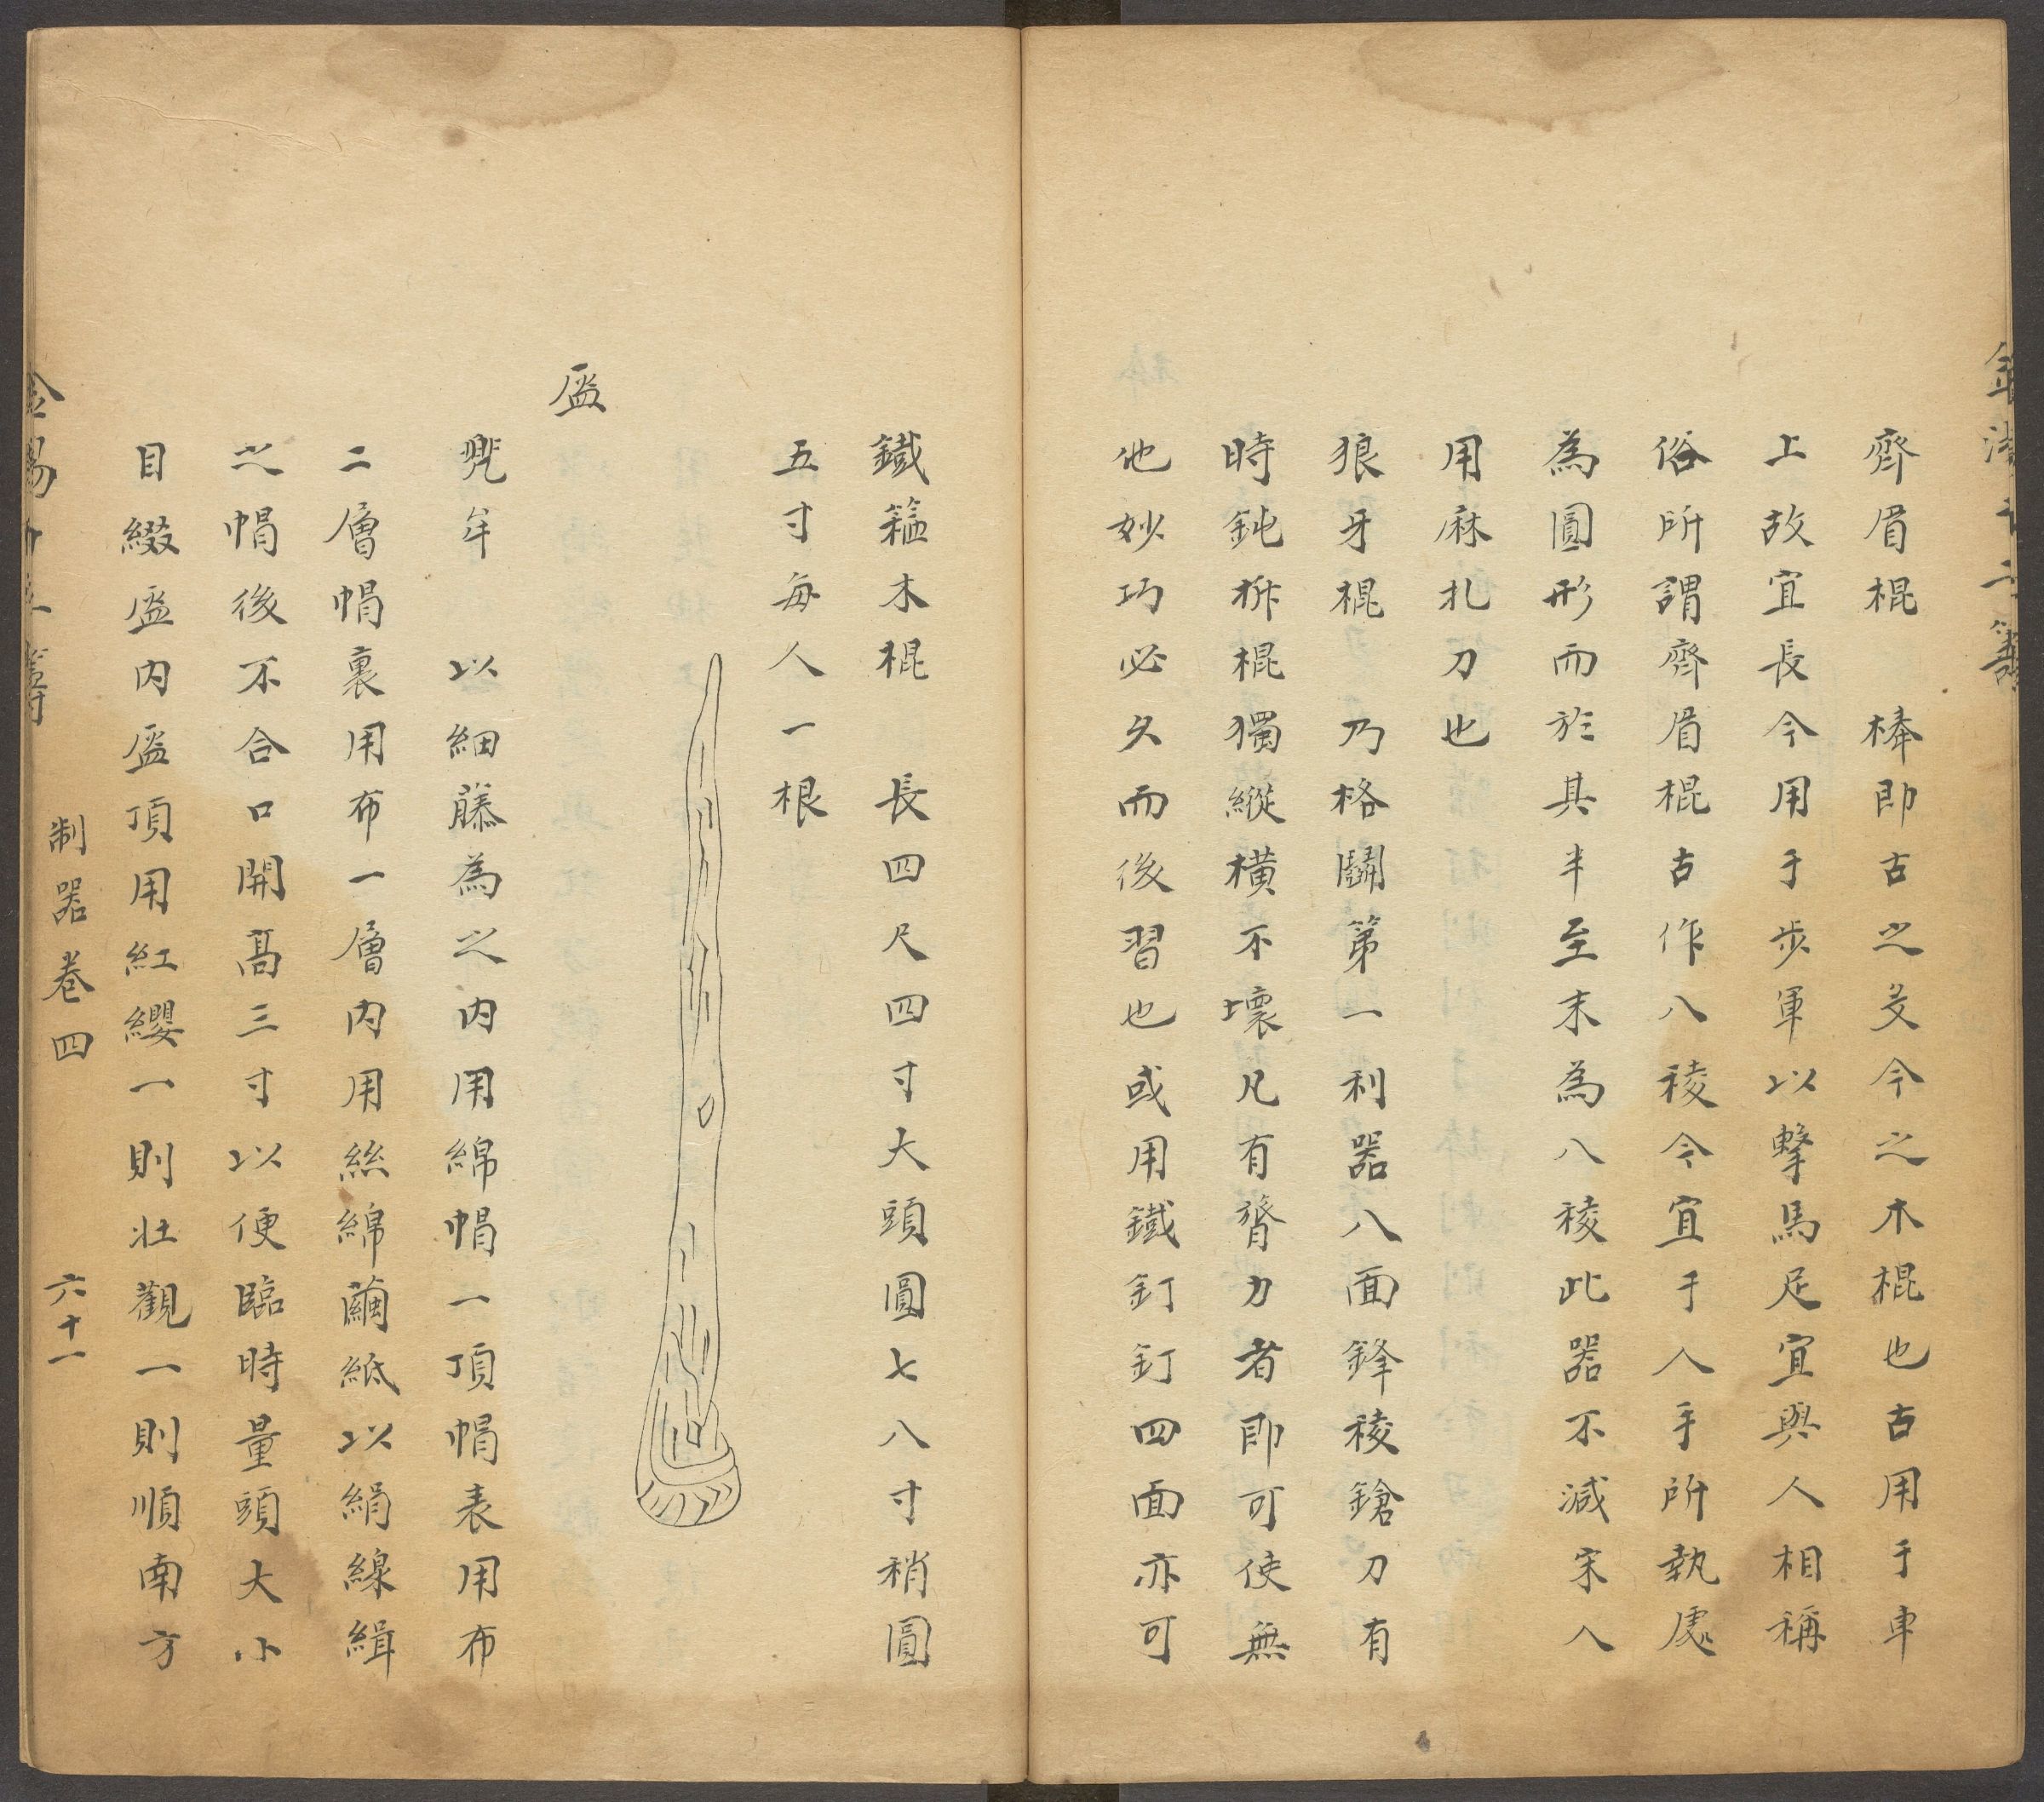 齊眉棍　棒即古之殳今之木棍也古用于車
上故宜長今用于步軍以擊馬足宜與人相稱
俗所謂齊眉棍古作八稜今宜于人手所執處
為圓形而於其半至末為八稜此器不減宋人
用麻札刀也
狼牙棍　乃格鬭第一利器八面鋒稜鎗刀有
時鈍拆棍獨縱橫不壞凡有膂力者即可使無
他妙巧必久而後習也或用鐵釘釘四面亦可
鐵箍木棍　長四尺四寸大頭圓七八寸稍圓
五寸每人一根
盔
兠牟　以細藤為之内用綿帽一頂帽表用布
二層帽裏用布一層内用絲綿繭紙以絹線緝
之帽後不合口開高三寸以便臨時量頭大小
目綴盔内盔頂用紅纓一則壯觀一則順南方
制器卷四　六十一